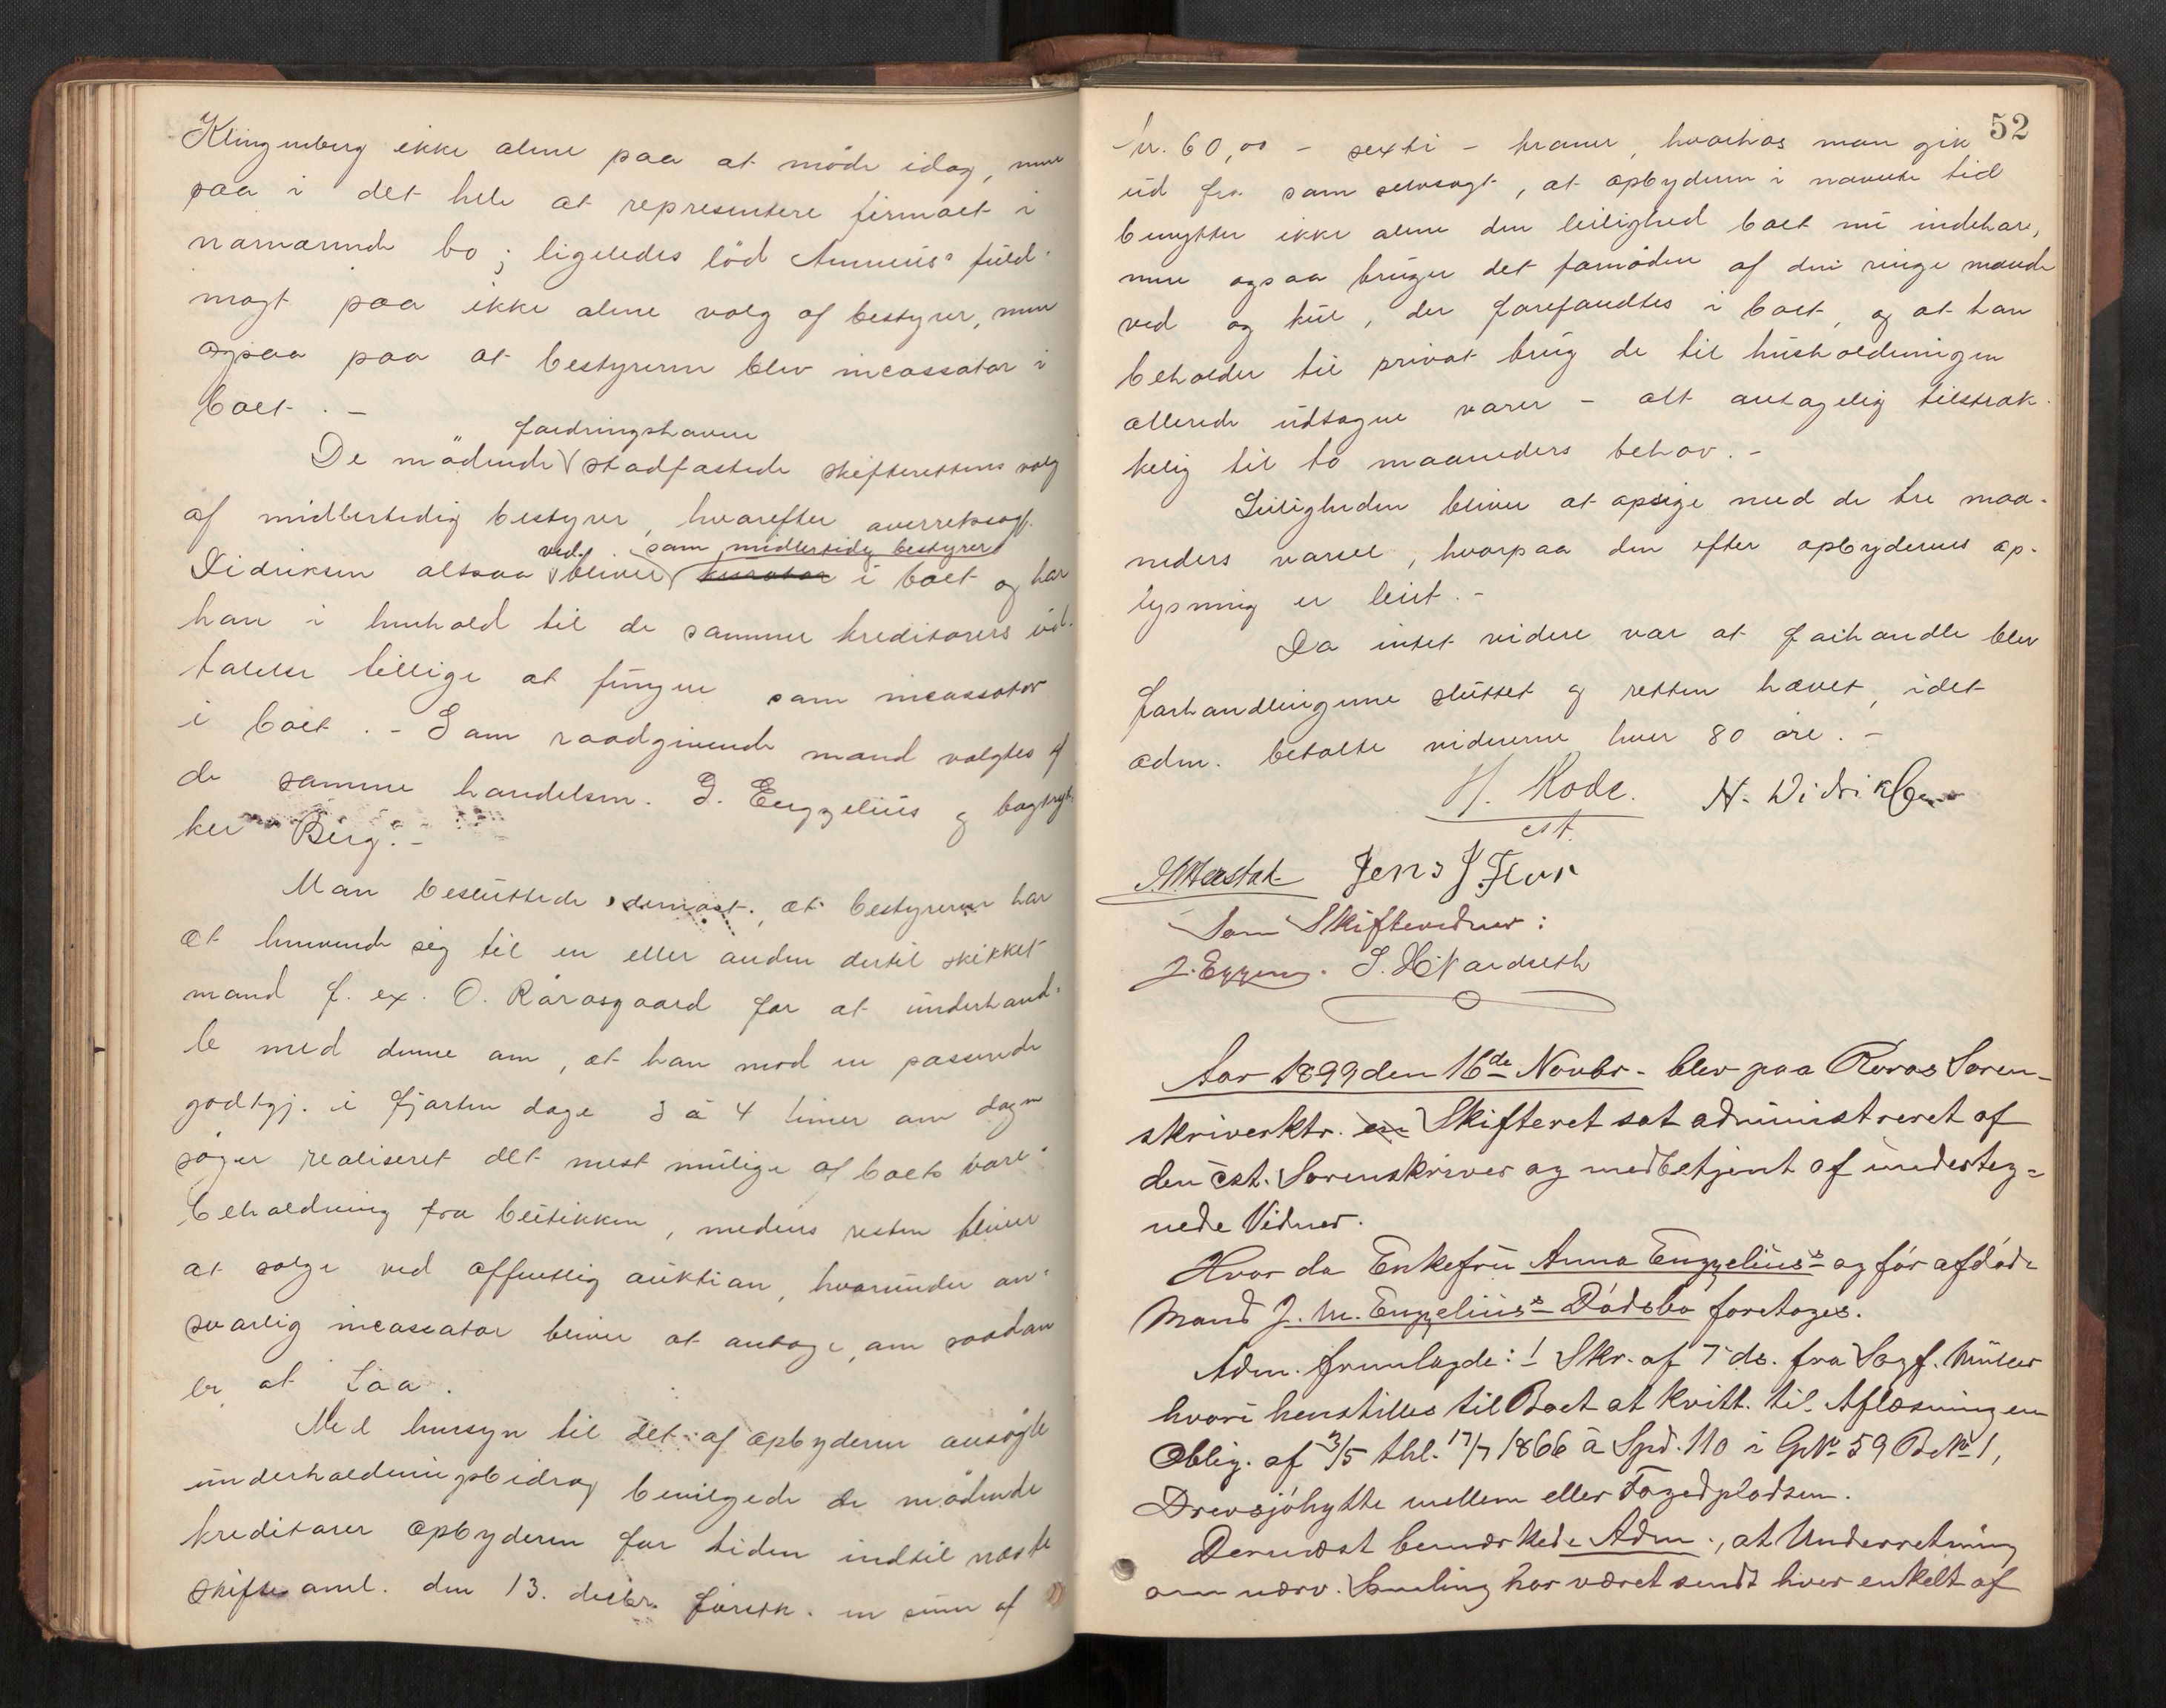 Klingenberg ikke alene paa at møde idag, men
paa i det hele at representere firmaet i
nærværende bo; ligeledes lød Ammeus' fuld-
magt paa ikke alene valg af bestyrer, men
ogsaa paa at bestyreren blev incassator i
boet. -
De mødende fordringshavere stadfæstede skifterettens valg
af midlertidig bestyrer, hvorefter overretssagf.
Didriksen altsaa ved bliver som midlertidig bestyrer kurator i boet og har
han i henhold til de samme kreditorers ud-
talelse tillige at fungere som incassator
i boet. - Som raadgivende mand valgtes af
de samme handelsm. G. Engzelius og bogtryk-
ker Berg. -
Man besluttede dernæst, at bestyreren har
at henvende sig til en eller anden dertil skikket
mand f. ex. O. Rørosgaard for at underhand-
le med denne om, at han mod en passende
godtgj. i fjorten dage 3 à 4 timer om dagen
søger realiseret det mest mulige af boets vare-
beholdning fra butikken, medens resten bliver
at sælge ved offentlig auktion, hvorunder an-
svarlig incassator bliver at antage, om saadan
er at faa.
Med hensyn til det af opbyderen ansøgte
underholdningsbidrag bevilgede de mødende
kreditorer opbyderen for tiden indtil næste
skiftesaml. den 13. decbr. førstk. en sum af
52
kr. 60,00 - sexti - kroner, hvorhos man gik
ud fra som selvsagt, at opbyderen i nævnte tid
benytter ikke alene den leilighed boet nu indehar,
men ogsaa bruger det fornødne af den ringe mængde
ved og kul, der forefandtes i boet, og at han
beholder til privat brug de til husholdningen
allerede udtagne varer - alt antagelig tilstræk-
kelig til to maaneders behov. -
Leiligheden bliver at opsige med de tre maa-
neders varsel, hvorpaa den efter opbyderens op-
lysning er leiet. -
Da intet videre var at forhandle blev
forhandlingerne sluttet og retten hævet, idet
adm. betalte vidnerne hver 80 øre. -
H. Rode. N. Didriksen
cst.
Jens J Flor
Som Skiftevidner:
J. Eggen.
Aar 1899 den 16de Novbr. blev paa Røros Soren-
skriverktr. en Skifteret sat administreret af
den cst. Sorenskriver og medbetjent af underteg-
nede Vidner.
Hvor da Enkefru Anna Engzelius's og før afdøde
Mand J. M. Engzelius's Dødsbo foretoges.
Adm. fremlagde: 1 Skr. af 7 ds. fra Sagf. Müller
hvori henstilles til Boet at kvitt. til Aflæsning en
Oblig. af 3/5 thl. 17/7 1866 à Spd. 110 i GNo 59 BNo 1,
Drevsjøhytte mellem eller Fogedpladsen.
Dernæst bemærkede Adm., at Underretning
om nærv. Samling har været sendt hver enkelt af